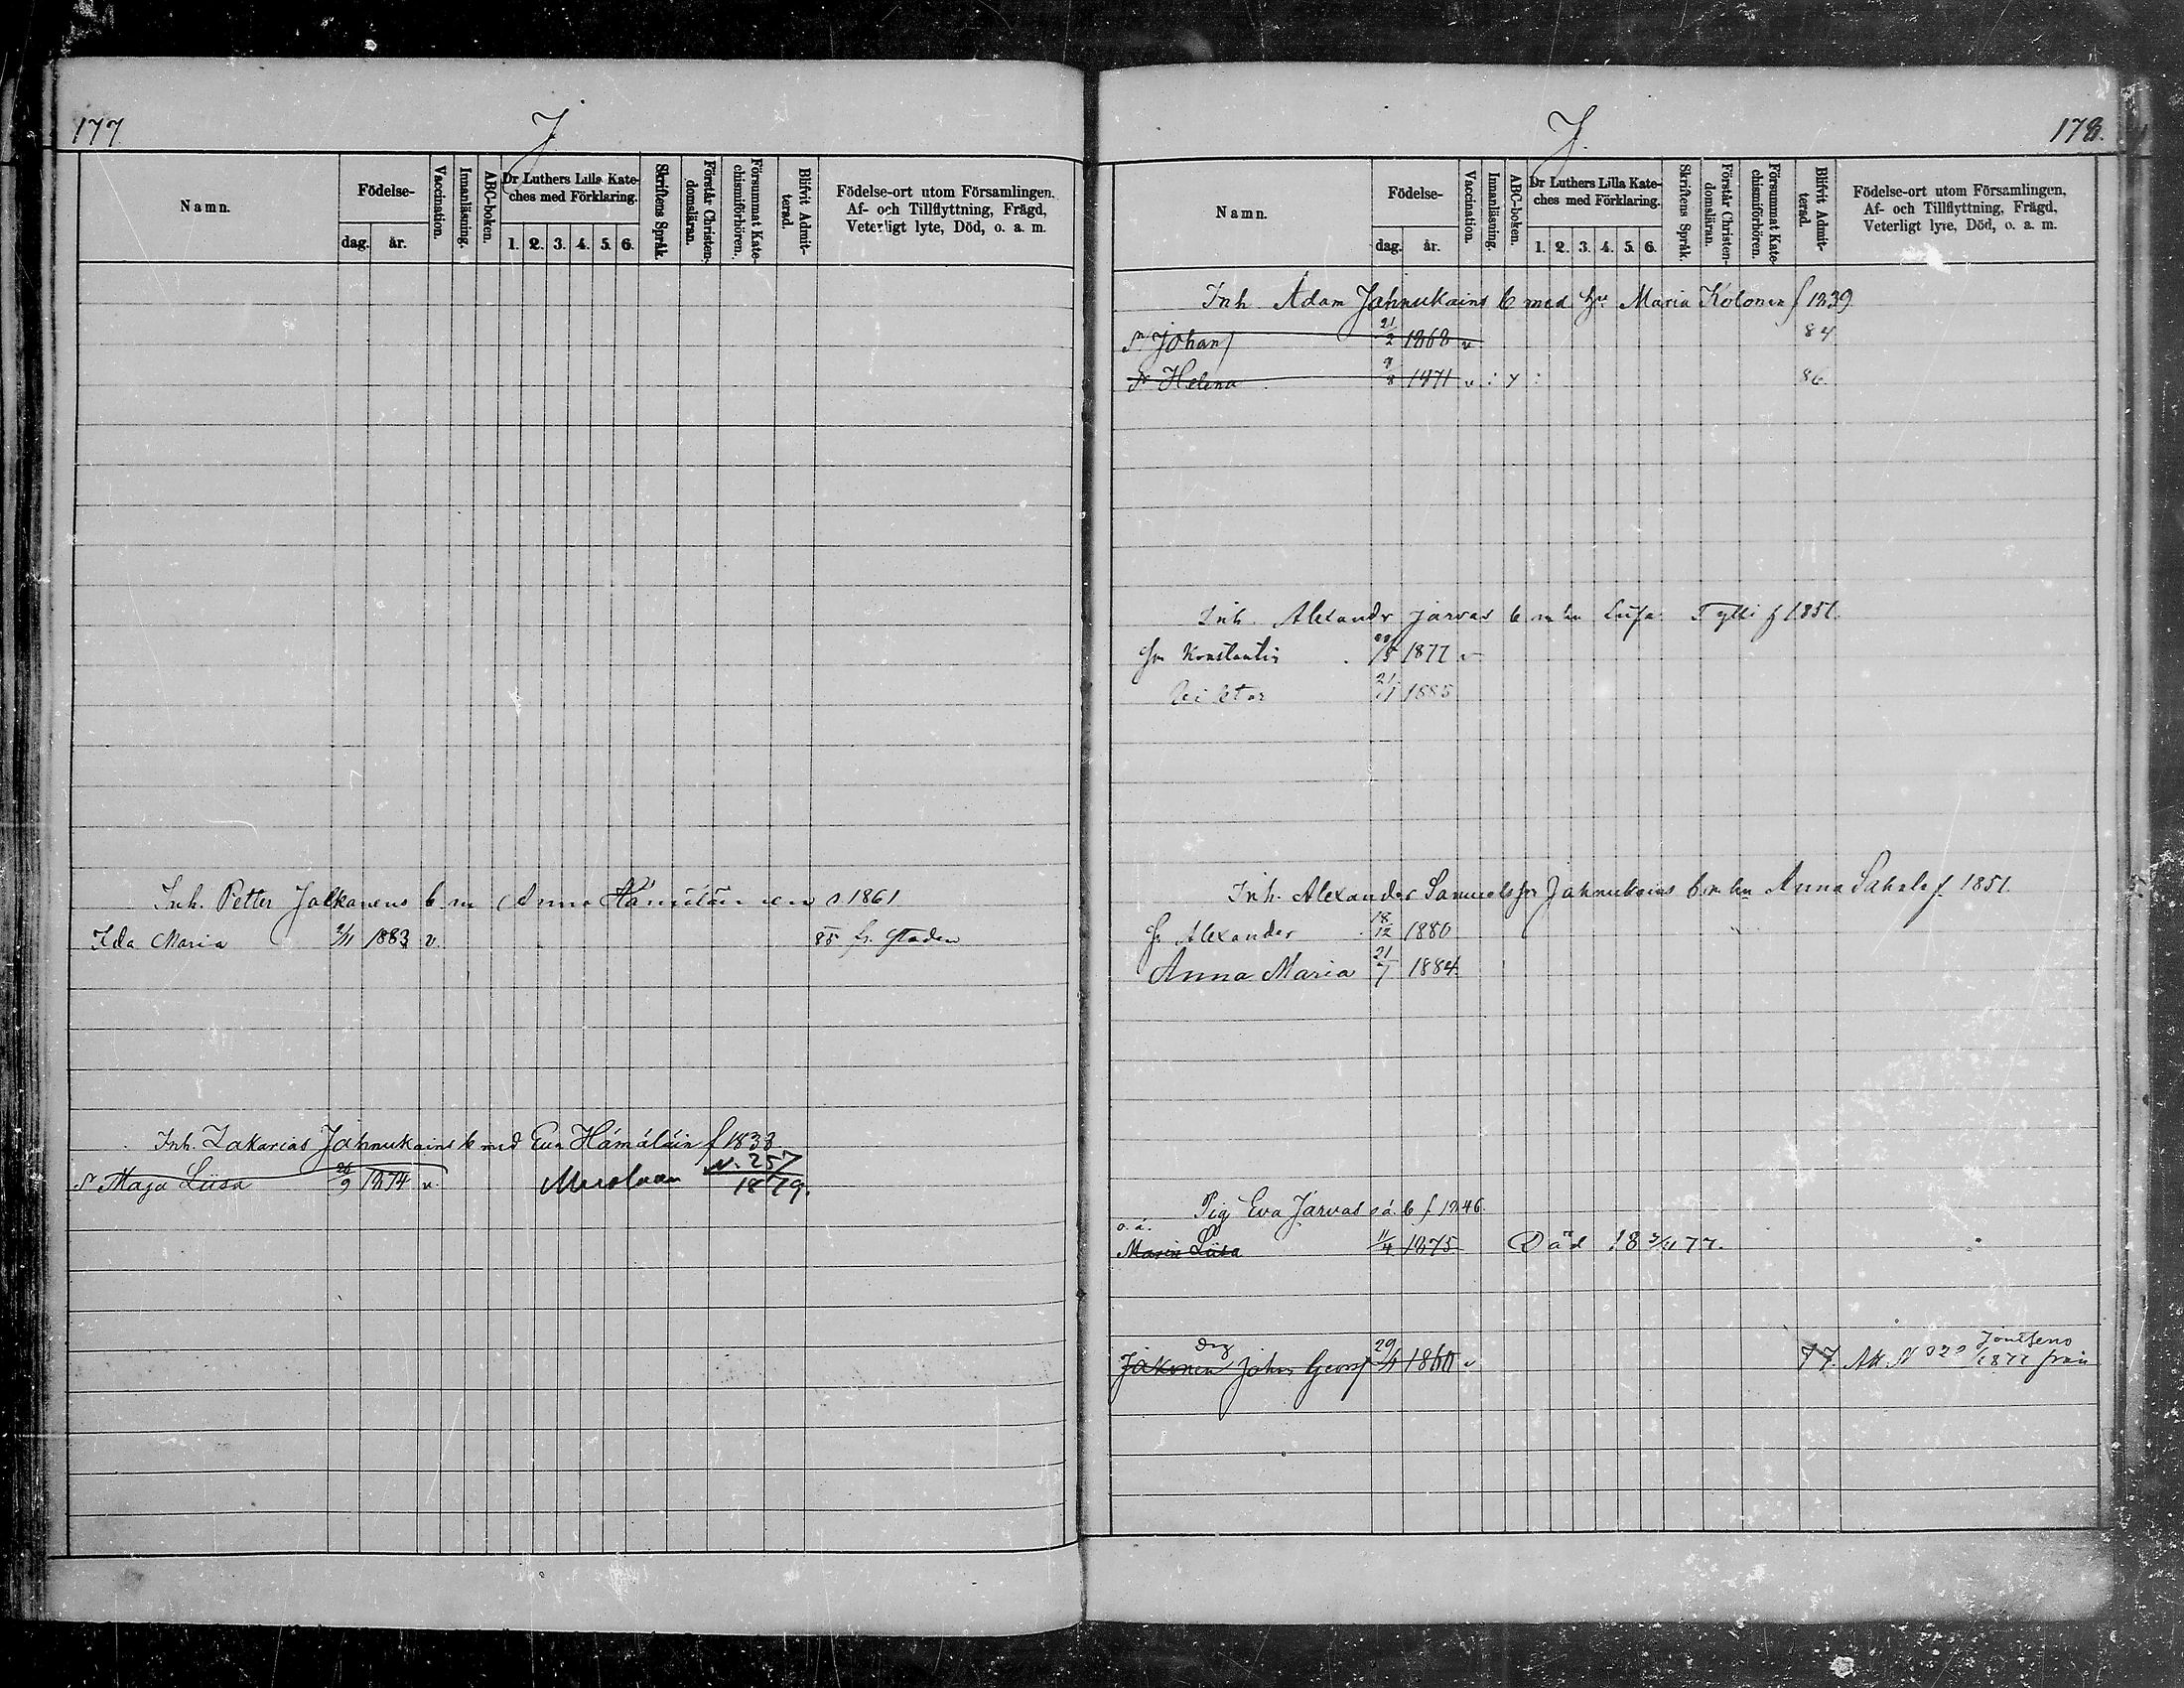 177
J.
Namn.
Födelse-
dag.
år.
Vaccination.
Innanläsning.
ABC-boken.
Dr Luthers Lilla Kate-
ches med Förklaring.
1. 2. 3. 4. 5. 6.
Skriftens Språk.
Förstår Christen-
domsläran.
Försummat Kate-
chismiförhören.
Blifvit Admit-
terad.
Födelse-ort utom Församlingen.
Af- och Tillflyttning, Frägd,
Veterligt lyte, Död, o. a. m.
Inh. Petter Jalkanens b m Anna 1861
Ida Maria 1883 v. 85 fr. Staden
Inh. Zakarias Jahnukains b med Eva Hämäläin f 1833
Maja Liisa 9 1874 v. N. 257
1879.
J.
178.
Namn.
Födelse-
dag.
år.
Vaccination.
Innanläsning.
ABC-boken.
Dr Luthers Lilla Kate-
ches med Förklaring.
1. 2. 3. 4. 5. 6.
Skriftens Språk.
Förstår Christen-
domsläran.
Försummat Kate-
chismiförhören.
Blifvit Admit-
terad.
Födelse-ort utom Församlingen,
Af- och Tillflyttning, Frägd,
Veterligt lyte, Död, o. a. m.
Inh. Adam Jahnukains b med hu Maria Kolonen f 1839
Johan 21/2 1868 v 84
Helena 1871 v : y : 86
Inh. Alexandr Jarvas b m hu Luisa Tylli f 1851.
Konstantin 1877 v
Viktor 21 1885
Inh. Alexander Samuelssn Jahnukains b m hu Anna Sahala f. 1851.
Alexander 18/12 1880
Anna Maria 21/7 1884
Pig Eva Jarvas oä. b f 1846.
o. ä.
Maria Liisa 11/4 1875 Död 18 3/11 77.
drg
Jakonen Johan Georg 1860 v 77. Att. N 1877 från